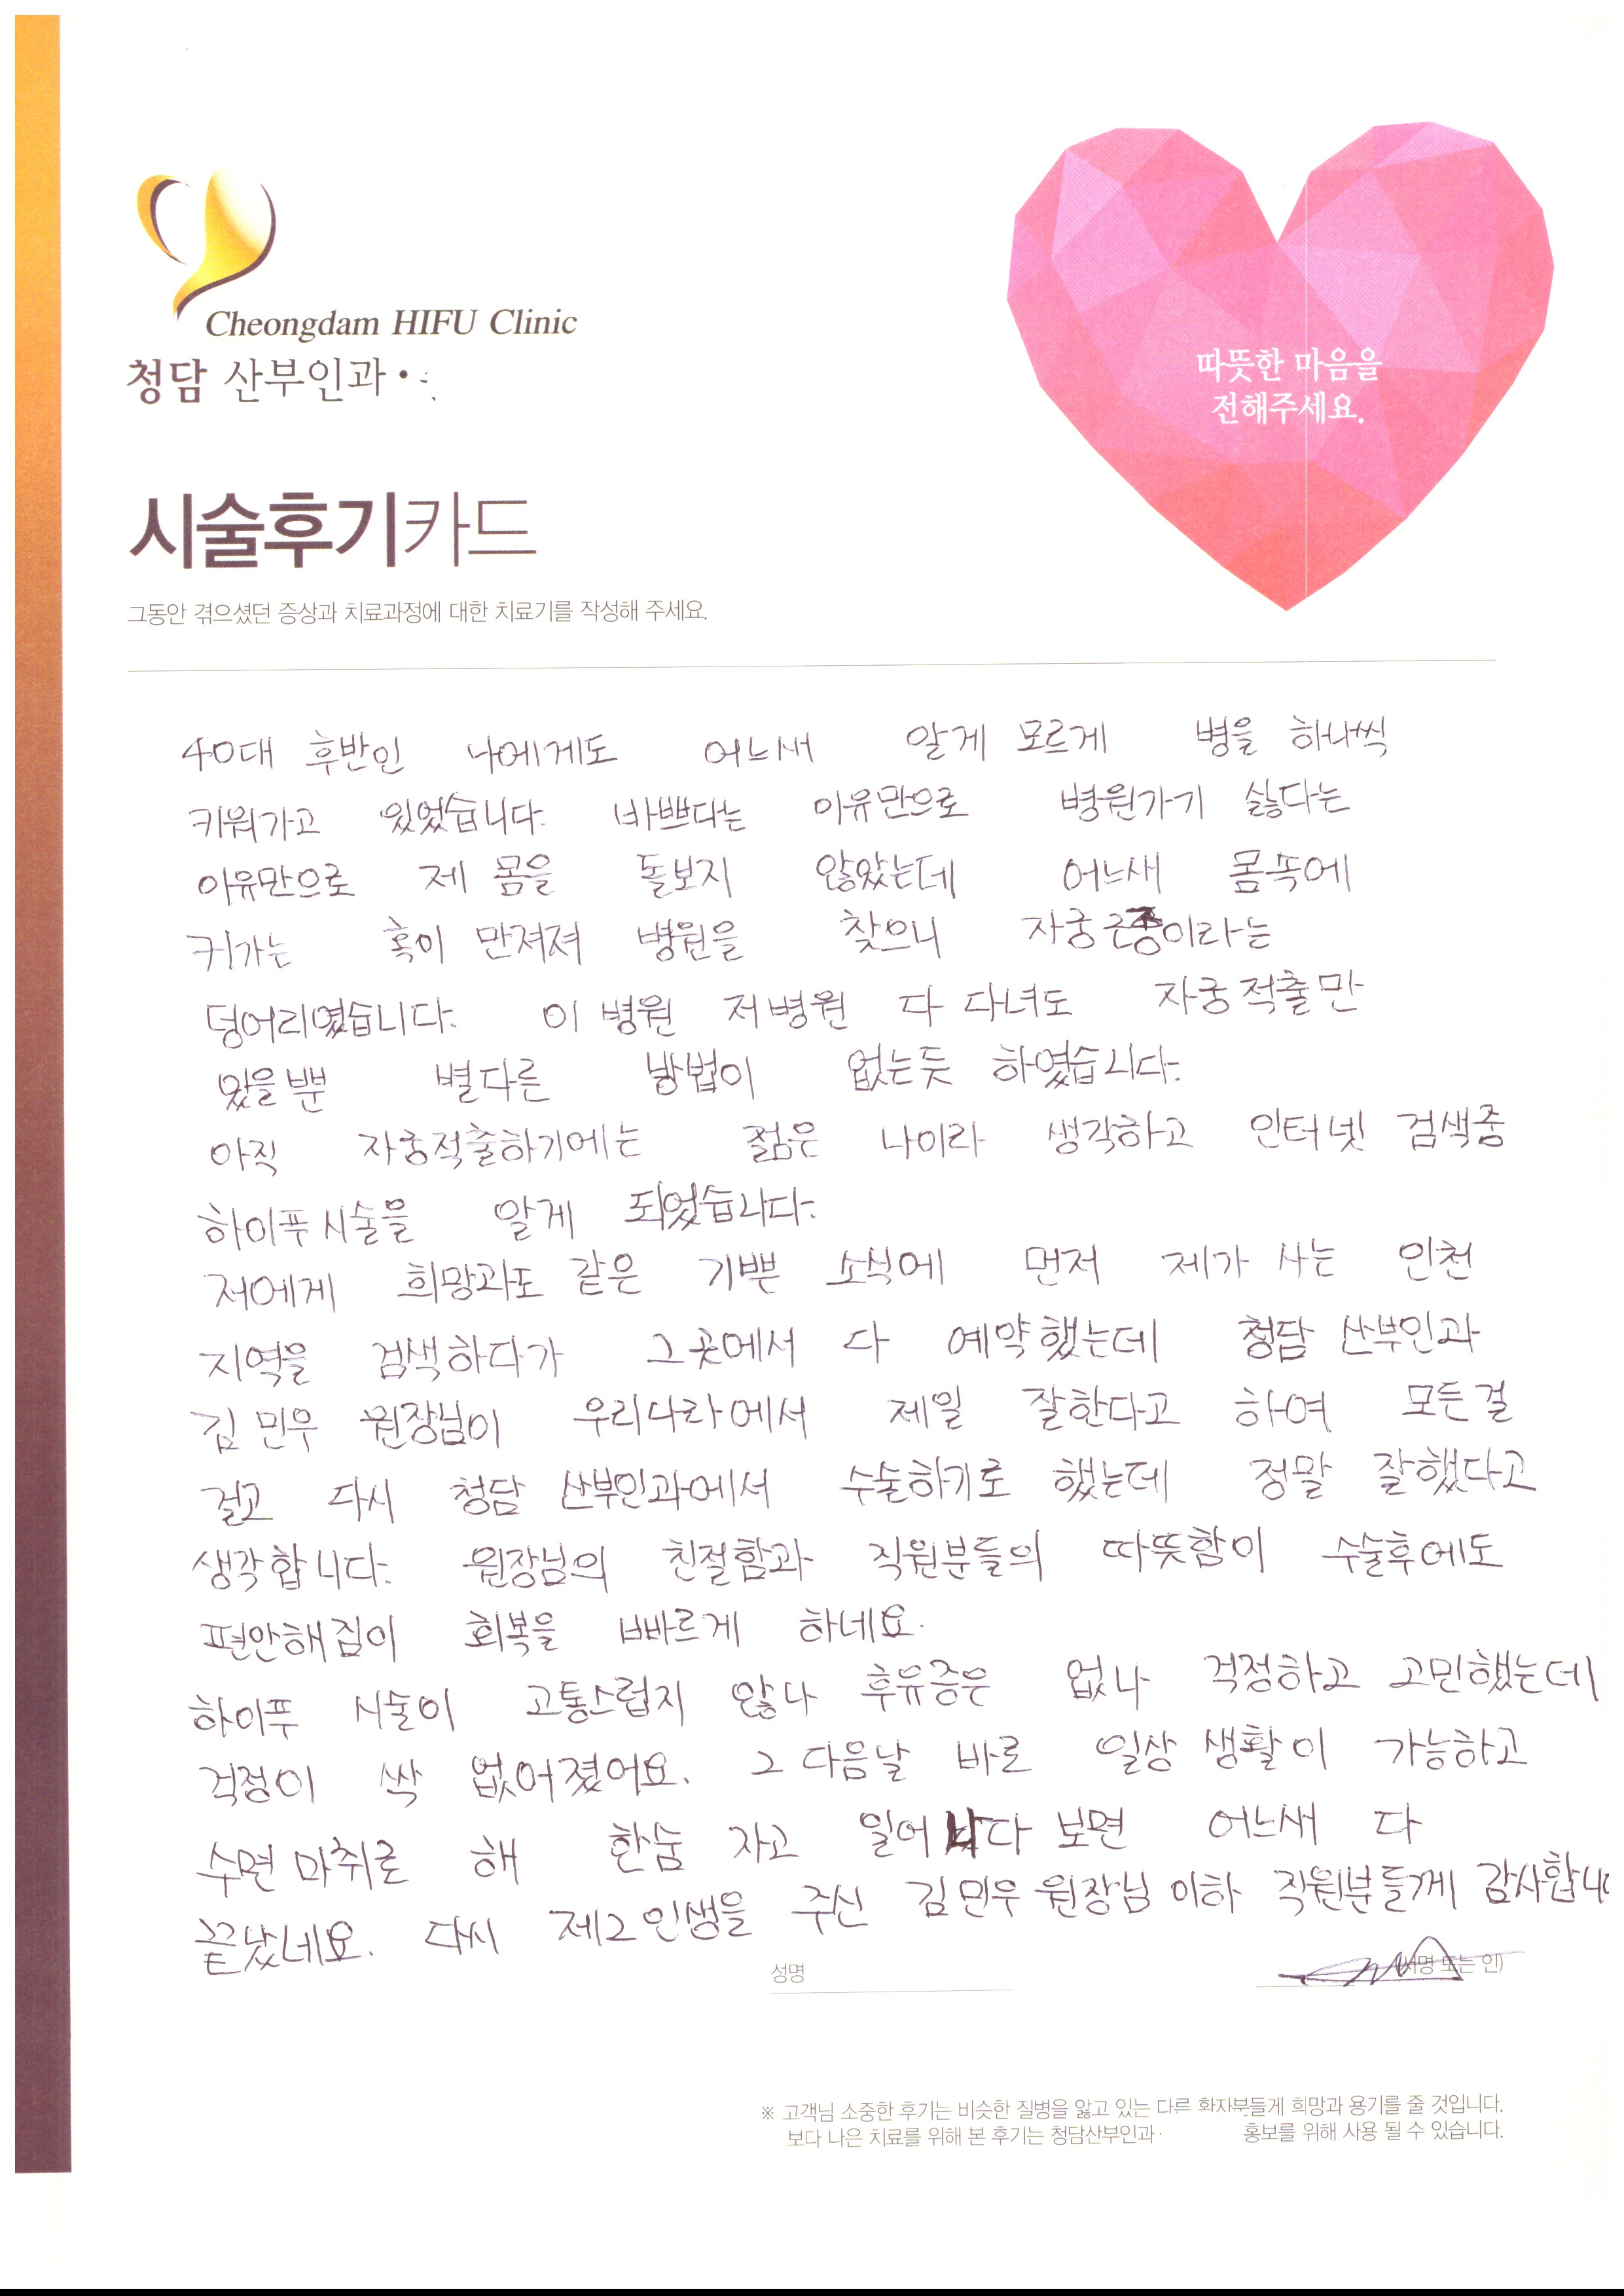 Cheongdam HIFU Clinic
청담 산부인과
따뜻한 마음을
전해주세요.
시술후기카드
그동안 겪으셨던 증상과 치료과정에 대한 치료기를 작성해 주세요.
40대 후반인 나에게도 어느새 알게 모르게 병을 하나씩
키워가고 있었습니다. 바쁘다는 이유만으로 병원가기 싫다는
이유만으로 제 몸을 돌보지 않았는데 어느새 몸속에
커가는 혹이 만져져 병원을 찾으니 자궁근종이라는
덩어리였습니다. 이 병원 저병원 다 다녀도 자궁적출만
있을뿐 별다른 방법이 없는듯 하였습니다.
아직 자궁적출하기에는 젊은 나이라 생각하고 인터넷 검색중
하이푸시술을 알게 되었습니다.
저에게 희망과도 같은 기쁜 소식에 먼저 제가 사는 인천
지역을 검색하다가 그곳에서 다 예약했는데 청담 산부인과
김민우 원장님이 우리나라에서 제일 잘한다고 하여 모든걸
걸고 다시 청담 산부인과에서 수술하기로 했는데 정말 잘했다고
생각합니다. 원장님의 친절함과 직원분들의 따뜻함이 수술후에도
편안해짐이 회복을 빠르게 하네요.
하이푸 시술이 고통스럽지 않나 후유증은 없나 걱정하고 고민했는데
걱정이 싹 없어졌어요. 그 다음날 바로 일상 생활이 가능하고
수면마취로 해 한숨 자고 일어났다 보면 어느새 다
끝났네요. 다시 제2인생을 주신 김민우 원장님 이하 직원분들께 감사합니
성명
또는 인)
※ 고객님 소중한 후기는 비슷한 질병을 앓고 있는 다른 환자분들게 희망과 용기를 줄 것입니다.
보다 나은 치료를 위해 본 후기는 청담산부인과· 홍보를 위해 사용 될 수 있습니다.